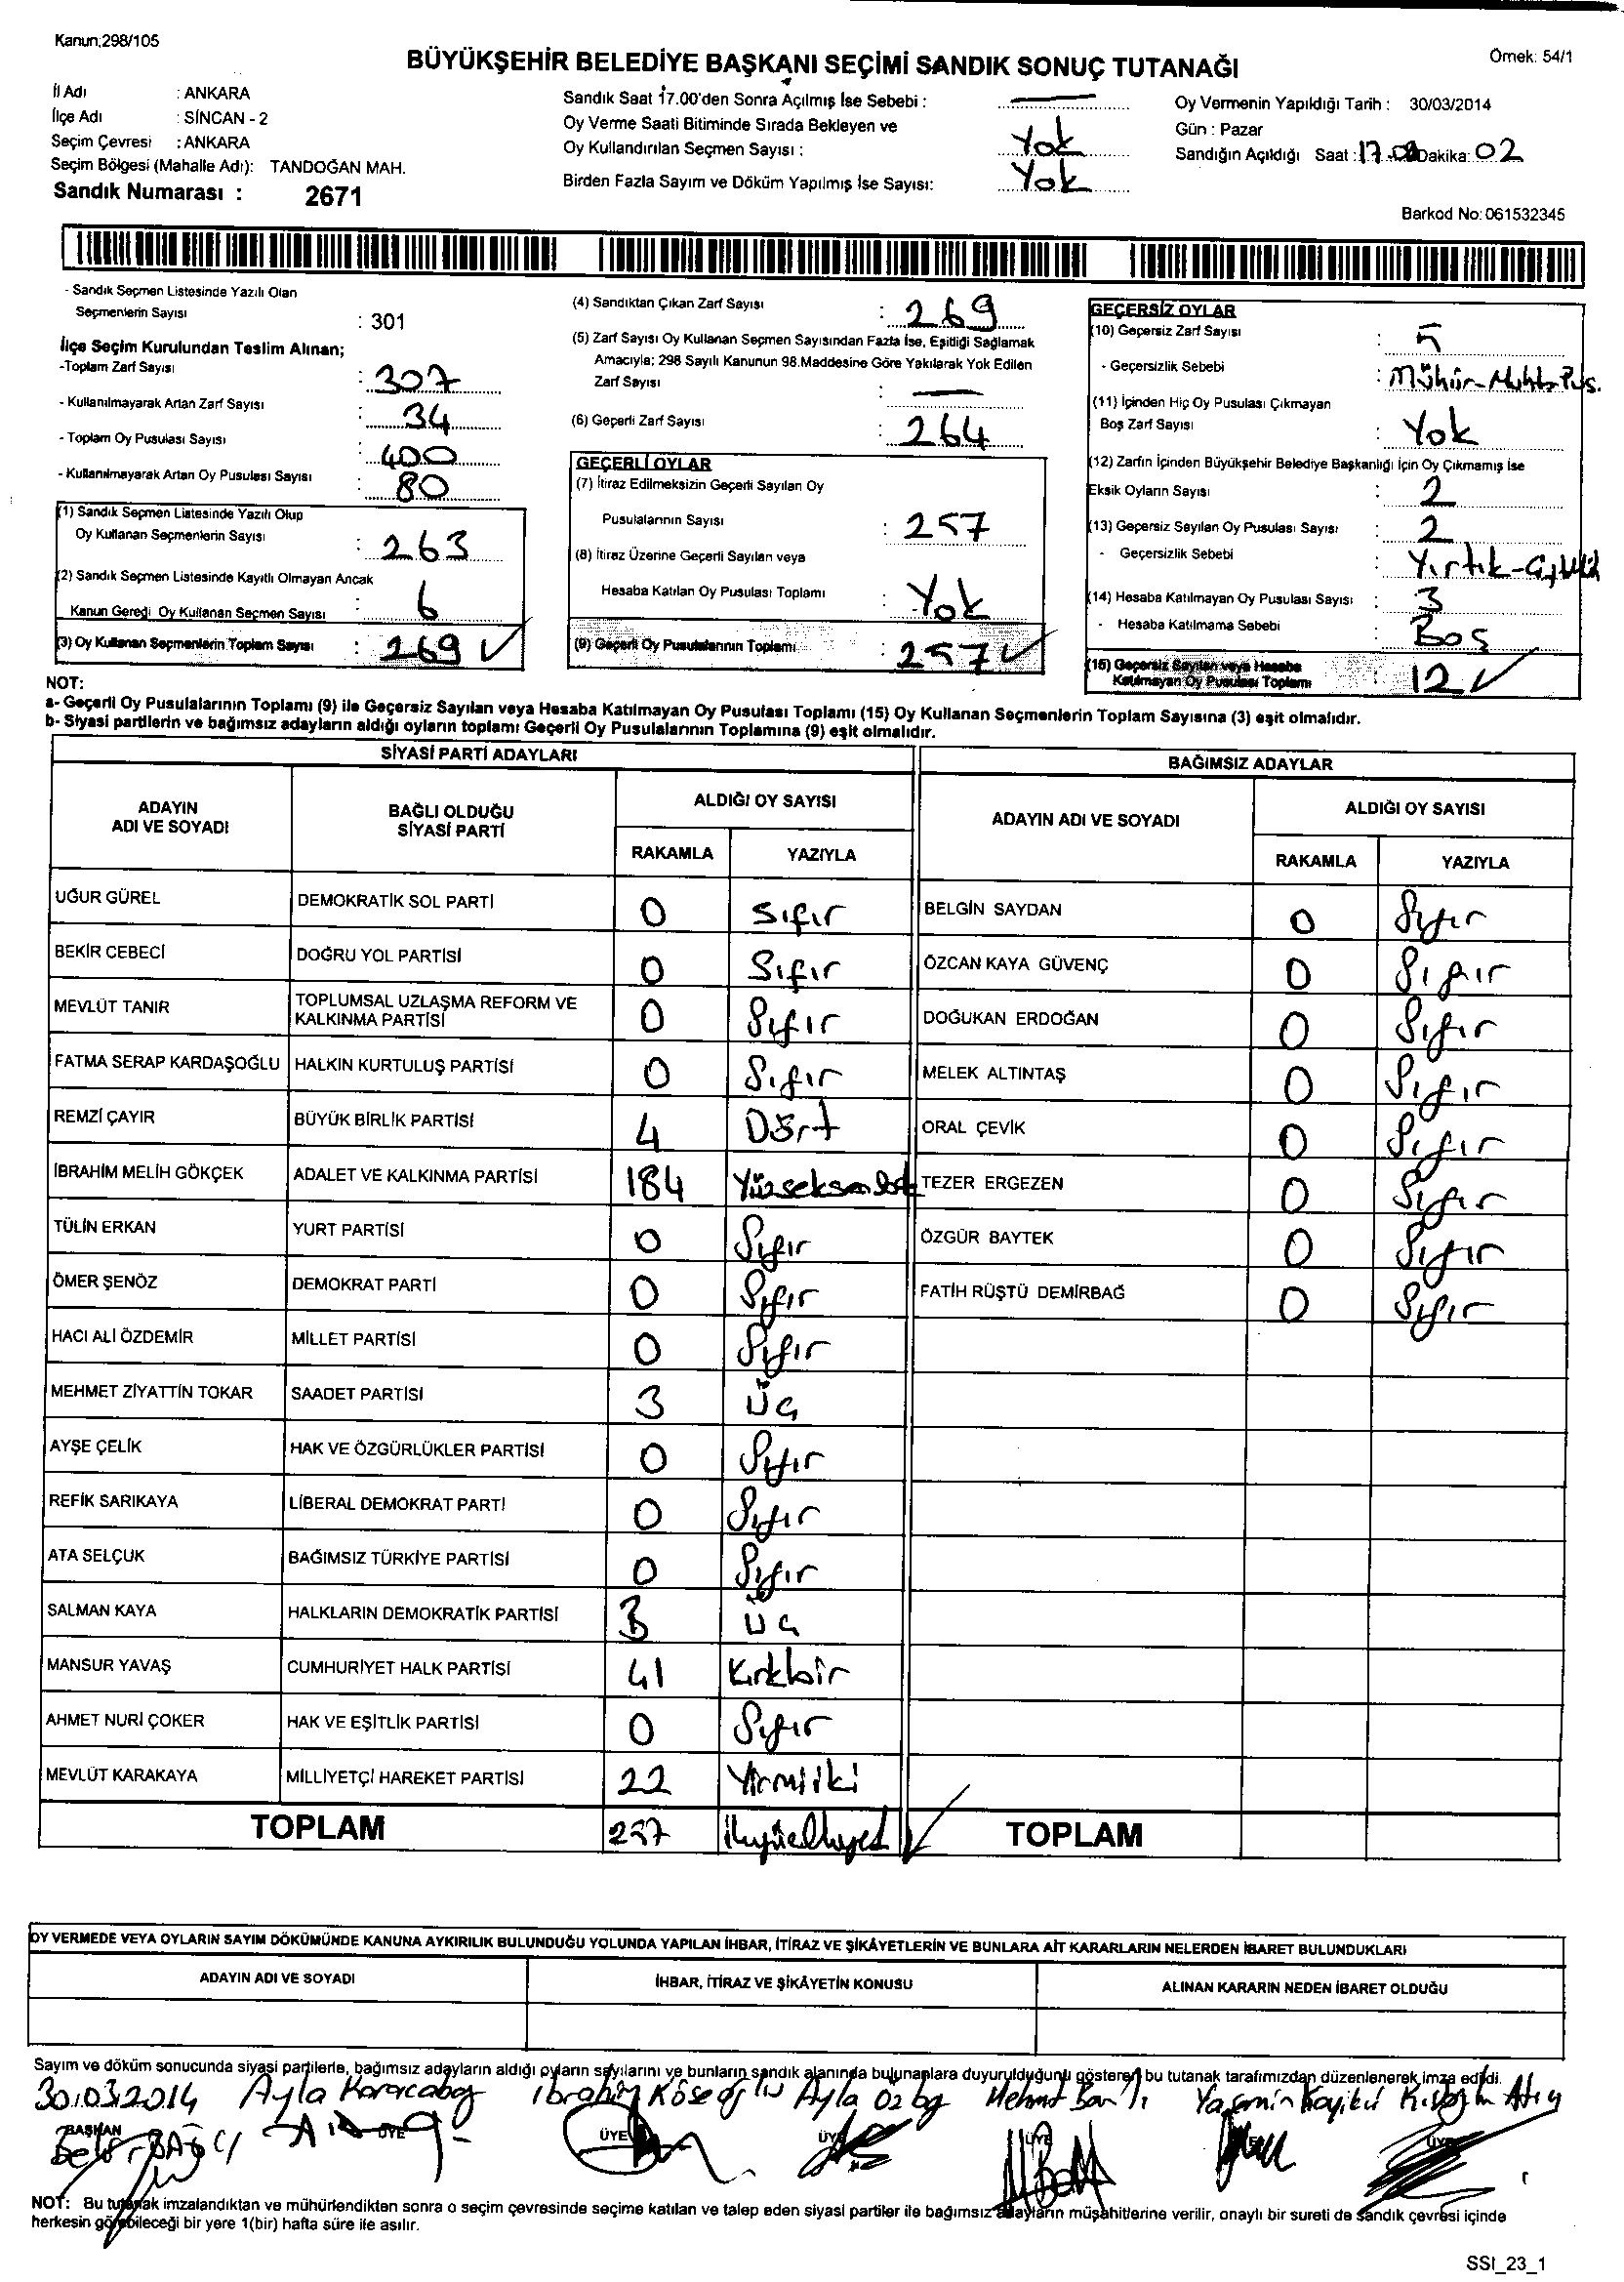 Kanun;298/105
BÜYÜKŞEHİR BELEDİYE BAŞKANI SEÇİMİ SANDIK SONUÇ TUTANAĞI
Örnek: 54/1
İl Adı : ANKARA
İlçe Adı : SİNCAN - 2
Seçim Çevresi : ANKARA
Seçim Bölgesi (Mahalle Adı): TANDOĞAN MAH.
Sandık Numarası : 2671
Sandık Saat 17.00'den Sonra Açılmış İse Sebebi :
Oy Verme Saati Bitiminde Sırada Bekleyen ve
Oy Kullandırılan Seçmen Sayısı : Yok
Birden Fazla Sayım ve Döküm Yapılmış İse Sayısı: Yok
Oy Vermenin Yapıldığı Tarih : 30/03/2014
Gün : Pazar
Sandığın Açıldığı Saat : 17.00 Dakika: 02
Barkod No: 061532345
- Sandık Seçmen Listesinde Yazılı Olan
Seçmenlerin Sayısı : 301
İlçe Seçim Kurulundan Teslim Alınan;
-Toplam Zarf Sayısı : 307
- Kullanılmayarak Artan Zarf Sayısı : 34
- Toplam Oy Pusulası Sayısı : 400
- Kullanılmayarak Artan Oy Pusulası Sayısı : 80
(1) Sandık Seçmen Listesinde Yazılı Olup
Oy Kullanan Seçmenlerin Sayısı : 263
(2) Sandık Seçmen Listesinde Kayıtlı Olmayan Ancak
Kanun Gereği Oy Kullanan Seçmen Sayısı : 6
(3) Oy Kullanan Seçmenlerin Toplam Sayısı : 269
(4) Sandıktan Çıkan Zarf Sayısı : 269
(5) Zarf Sayısı Oy Kullanan Seçmen Sayısından Fazla İse, Eşitliği Sağlamak
Amacıyla; 298 Sayılı Kanunun 98.Maddesine Göre Yakılarak Yok Edilen
Zarf Sayısı : —
(6) Geçerli Zarf Sayısı : 264
GEÇERLİ OYLAR
(7) İtiraz Edilmeksizin Geçerli Sayılan Oy
Pusulalarının Sayısı : 257
(8) İtiraz Üzerine Geçerli Sayılan veya
Hesaba Katılan Oy Pusulası Toplamı : Yok
(9) Geçerli Oy Pusulalarının Toplamı : 257
GEÇERSİZ OYLAR
(10) Geçersiz Zarf Sayısı : 5
- Geçersizlik Sebebi : Mühür-
(11) İçinden Hiç Oy Pusulası Çıkmayan
Boş Zarf Sayısı : Yok
(12) Zarfın İçinden Büyükşehir Belediye Başkanlığı İçin Oy Çıkmamış İse
Eksik Oyların Sayısı : 2
(13) Geçersiz Sayılan Oy Pusulası Sayısı : 2
- Geçersizlik Sebebi : Yırtık-
(14) Hesaba Katılmayan Oy Pusulası Sayısı : 3
- Hesaba Katılmama Sebebi : Boş
(15) Geçersiz Sayılan veya Hesaba
Katılmayan Oy Pusulası Toplamı : 12
NOT:
a- Geçerli Oy Pusulalarının Toplamı (9) ile Geçersiz Sayılan veya Hesaba Katılmayan Oy Pusulası Toplamı (15) Oy Kullanan Seçmenlerin Toplam Sayısına (3) eşit olmalıdır.
b- Siyasi partilerin ve bağımsız adayların aldığı oyların toplamı Geçerli Oy Pusulalarının Toplamına (9) eşit olmalıdır.
SİYASİ PARTİ ADAYLARI
ADAYIN ADI VE SOYADI BAĞLI OLDUĞU SİYASİ PARTİ ALDIĞI OY SAYISI RAKAMLA YAZIYLA
UĞUR GÜREL DEMOKRATİK SOL PARTİ 0 Sıfır
BEKİR CEBECİ DOĞRU YOL PARTİSİ 0 Sıfır
MEVLÜT TANIR TOPLUMSAL UZLAŞMA REFORM VE KALKINMA PARTİSİ 0 Sıfır
FATMA SERAP KARDAŞOĞLU HALKIN KURTULUŞ PARTİSİ 0 Sıfır
REMZİ ÇAYIR BÜYÜK BİRLİK PARTİSİ 4 Dört
İBRAHİM MELİH GÖKÇEK ADALET VE KALKINMA PARTİSİ 184 Yüzseksendört
TÜLİN ERKAN YURT PARTİSİ 0 Sıfır
ÖMER ŞENÖZ DEMOKRAT PARTİ 0 Sıfır
HACI ALİ ÖZDEMİR MİLLET PARTİSİ 0 Sıfır
MEHMET ZİYATTİN TOKAR SAADET PARTİSİ 3 Üç
AYŞE ÇELİK HAK VE ÖZGÜRLÜKLER PARTİSİ 0 Sıfır
REFİK SARIKAYA LİBERAL DEMOKRAT PARTİ 0 Sıfır
ATA SELÇUK BAĞIMSIZ TÜRKİYE PARTİSİ 0 Sıfır
SALMAN KAYA HALKLARIN DEMOKRATİK PARTİSİ 3 Üç
MANSUR YAVAŞ CUMHURİYET HALK PARTİSİ 41 Kırkbir
AHMET NURİ ÇOKER HAK VE EŞİTLİK PARTİSİ 0 Sıfır
MEVLÜT KARAKAYA MİLLİYETÇİ HAREKET PARTİSİ 22 Yirmiiki
TOPLAM 257 ikiyüzelliyedi
BAĞIMSIZ ADAYLAR
ADAYIN ADI VE SOYADI ALDIĞI OY SAYISI RAKAMLA YAZIYLA
BELGİN SAYDAN 0 Sıfır
ÖZCAN KAYA GÜVENÇ 0 Sıfır
DOĞUKAN ERDOĞAN 0 Sıfır
MELEK ALTINTAŞ 0 Sıfır
ORAL ÇEVİK 0 Sıfır
TEZER ERGEZEN 0 Sıfır
ÖZGÜR BAYTEK 0 Sıfır
FATİH RÜŞTÜ DEMİRBAĞ 0 Sıfır
TOPLAM
OY VERMEDE VEYA OYLARIN SAYIM DÖKÜMÜNDE KANUNA AYKIRILIK BULUNDUĞU YOLUNDA YAPILAN İHBAR, İTİRAZ VE ŞİKÂYETLERİN VE BUNLARA AİT KARARLARIN NELERDEN İBARET BULUNDUKLARI
ADAYIN ADI VE SOYADI İHBAR, İTİRAZ VE ŞİKÂYETİN KONUSU ALINAN KARARIN NEDEN İBARET OLDUĞU
Sayım ve döküm sonucunda siyasi partilerle, bağımsız adayların aldığı oyların sayılarını ve bunların sandık alanında bulunanlara duyurulduğunu gösteren bu tutanak tarafımızdan düzenlenerek imza edildi.
30.03.2014 Ayla İbrahim Köseoğlu Ayla Mehmet Yasemin
BAŞKAN ÜYE ÜYE ÜYE ÜYE ÜYE
NOT: Bu tutanak imzalandıktan ve mühürlendikten sonra o seçim çevresinde seçime katılan ve talep eden siyasi partiler ile bağımsız adayların müşahitlerine verilir, onaylı bir sureti de sandık çevresi içinde
herkesin görebileceği bir yere 1(bir) hafta süre ile asılır.
SSI_23_1